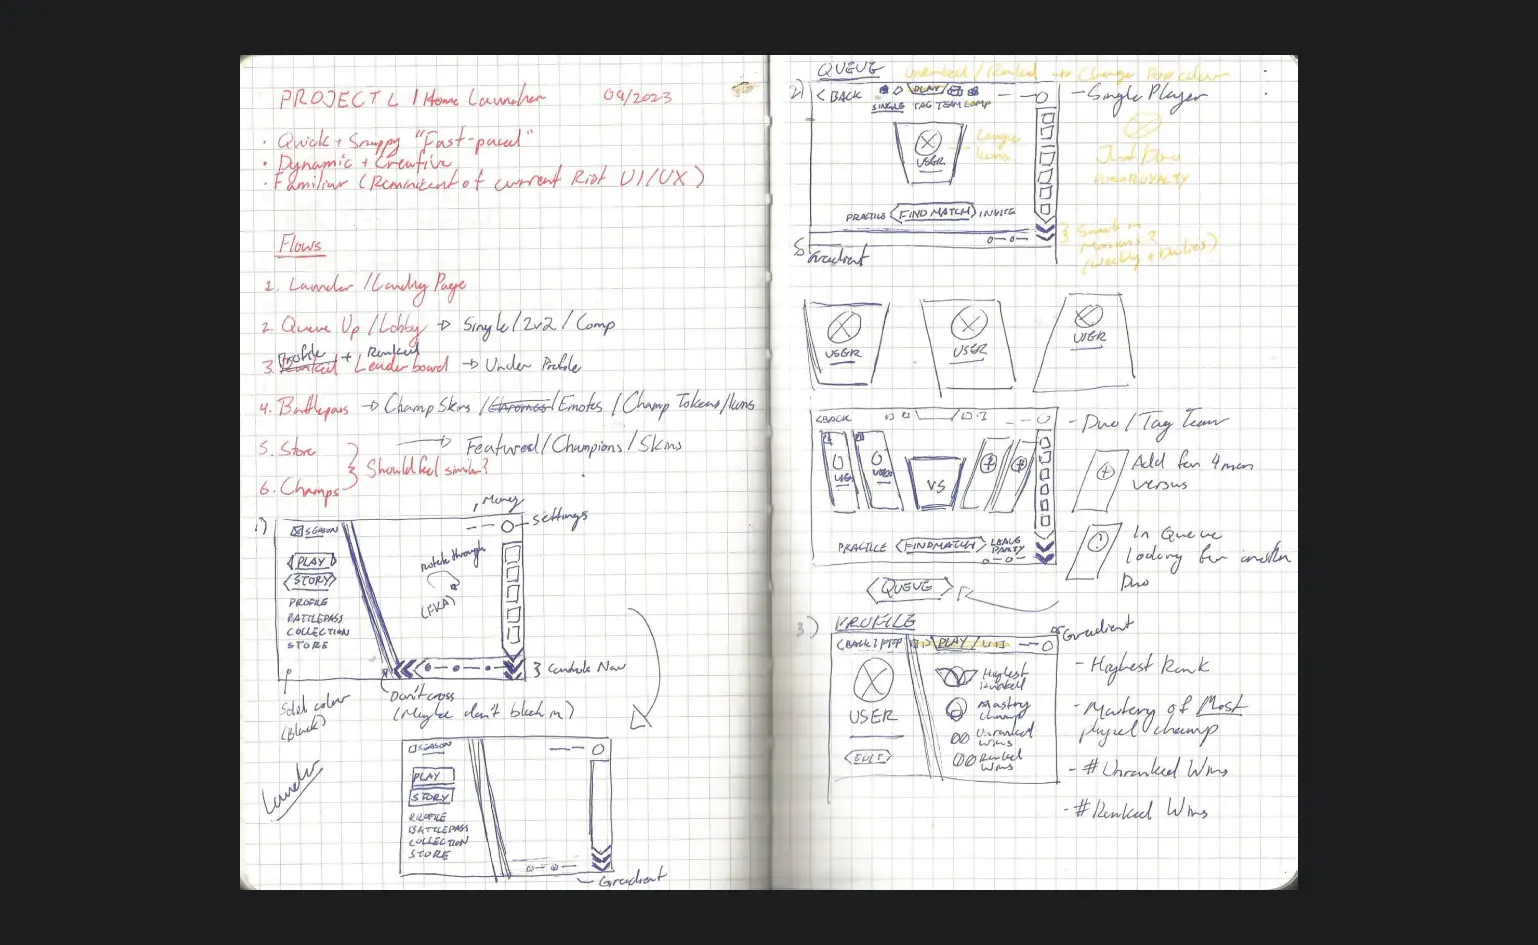 PROJECT L / Home Launcher 09/2023
· Quick + Snappy "Fast-paced"
· Dynamic + Creative
· Familiar (Reminicent of current Riot UI/UX)
Flows
1. Launcher / Landing Page
2. Queue Up / Lobby → Single / 2v2 / Comp
Profile + Ranked
3. Ranked Leaderboard → Under Profile
4. Battlepass → Champ Skins / Chromas / Emotes / Champ Tokens / Icons
5. Store → Featured / Champions / Skins
Should feel similar?
6. Champs
1)
Money
Settings
SEASON
PLAY
STORY
PROFILE
BATTLEPASS
COLLECTION
STORE
Rotate through
Controls Nav
Solid color
(Black)
Don't cross
(Maybe don't block in)
Launcher
SEASON
PLAY
STORY
PROFILE
BATTLEPASS
COLLECTION
STORE
Gradient
QUEUE
unranked / Ranked →
2)
< BACK
PLAY
SINGLE TAG TEAM COMP
- Single Player
USER
League
Icons
PRACTICE <FIND MATCH> INVITE
Missions?
(Weekly + Dailies)
Gradient
USER
USER
USER
<BACK
- Duo / Tag Team
USER
USER
VS
Add for 4 man
versus
PRACTICE <FINDMATCH> LEAVE
PARTY
In Queue
looking for another
Duo
<QUEUE>
3) PROFILE
Gradient
PLAY
USER
<EDIT>
Highest
Ranked
Mastery
champ
Unranked
Wins
Ranked
Wins
- Highest Rank
- Mastery of Most
played champ
- # Unranked Wins
- # Ranked Wins